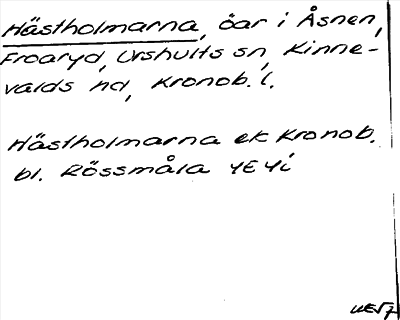 Hästholmarna, öar i Åsnen,
Froaryd, Urshults sn, Kinne-
valds hd, Kronob. l.
Hästholmarna ek Kronob.
bl. Rössmåla 4E 4i